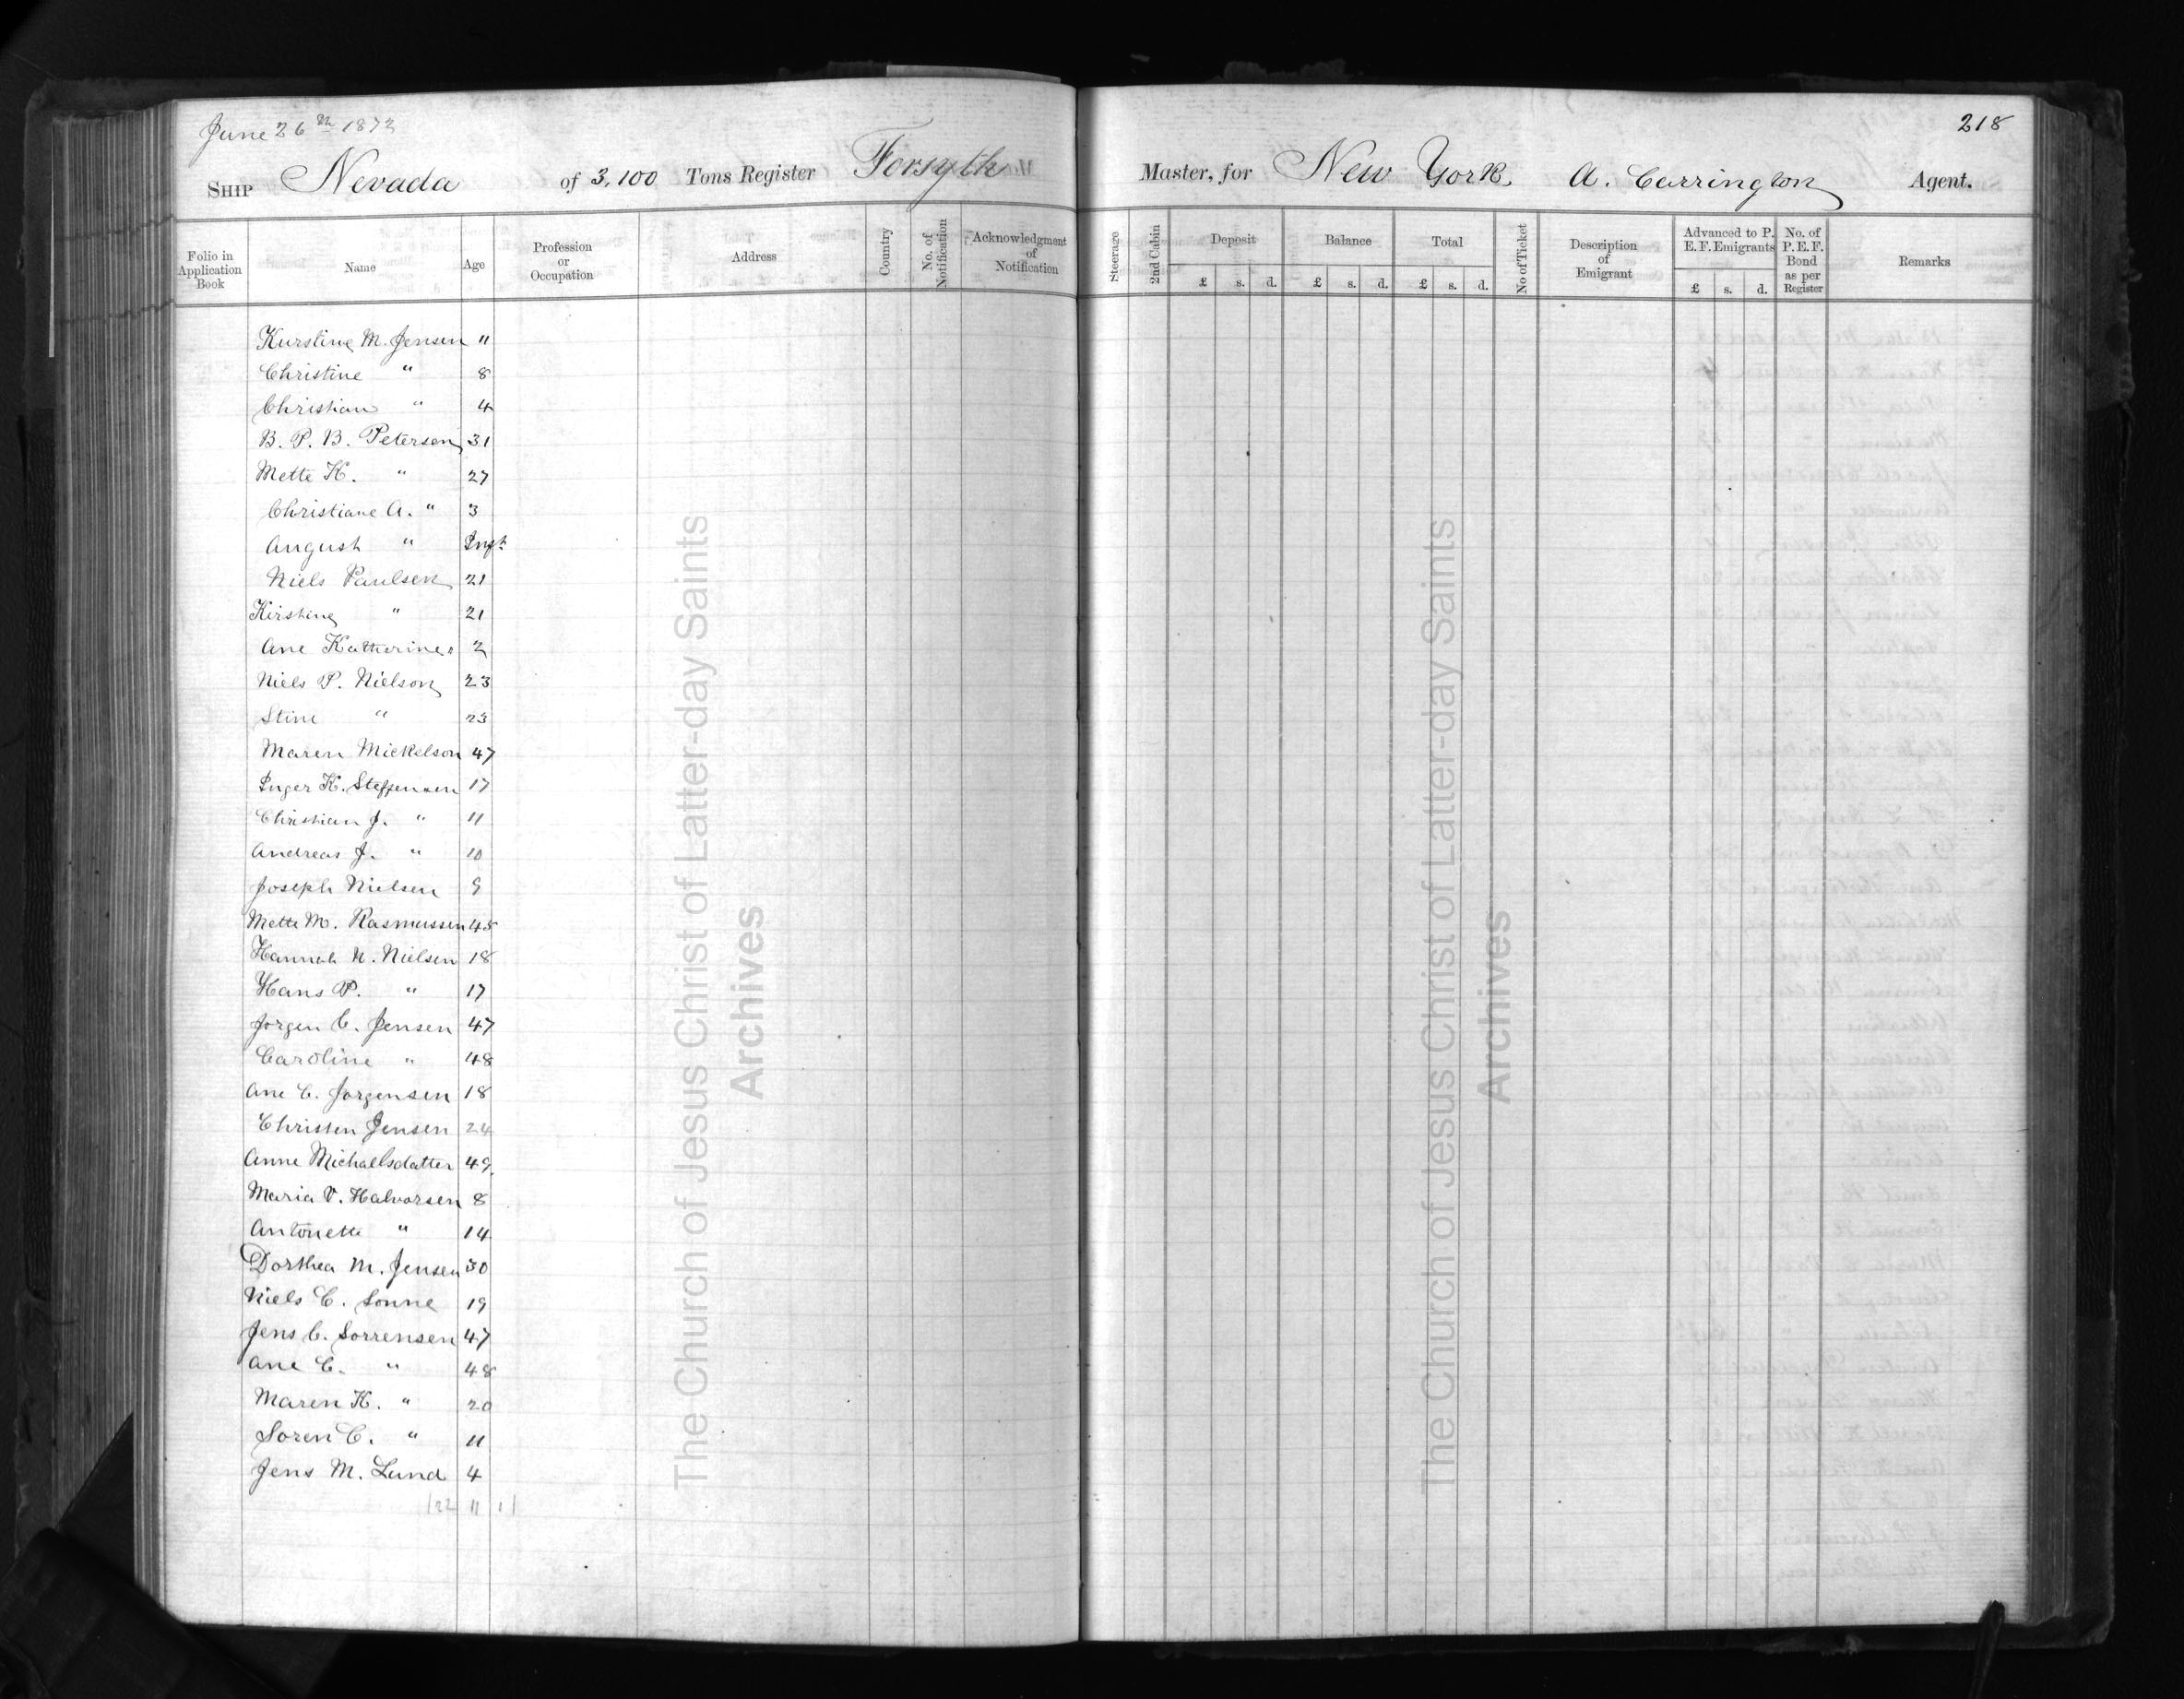 June 26th 1872
218
Ship Nevada of 3,100 Tons Register Forsyth Master, for New York, A. Carrington Agent.
Folio in Application Book Name Age Profession or Occupation Address Country No. of Notification Acknowledgment of Notification Steerage 2nd Cabin Deposit £ s. d. Balance £ s. d. Total £ s. d. No of Ticket Description of Emigrant Advanced to P. E. F. Emigrants £ s. d. No. of P. E. F. Bond as per Register Remarks
Kirstine M. Jensen "
Christine " 8
Christian " 4
B. P. B. Petersen 31
Mette K. " 27
Christiane A. " 3
August " Inft
Niels Paulsen 21
Kirstine " 21
Ane Katherine " 2
Niels P. Nielson 23
Stine " 23
Maren Mickelson 47
Inger K. Steffensen 17
Christian J. " 11
Andreas J. " 10
Joseph Nielsen 9
Mette M. Rasmussen 45
Hannah N. Nielsen 18
Hans P. " 17
Jorgen C. Jensen 47
Caroline " 48
Ane C. Jorgensen 18
Christen Jensen 24
Anne Michaelsdatter 49
Maria V. Halvorsen 8
Antonette " 14
Dorthea M. Jensen 30
Niels C. Sonne 19
Jens C. Sorrensen 47
Ane C. " 48
Maren K. " 20
Soren C. " 11
Jens M. Lund 4
The Church of Jesus Christ of Latter-day Saints
Archives
The Church of Jesus Christ of Latter-day Saints
Archives